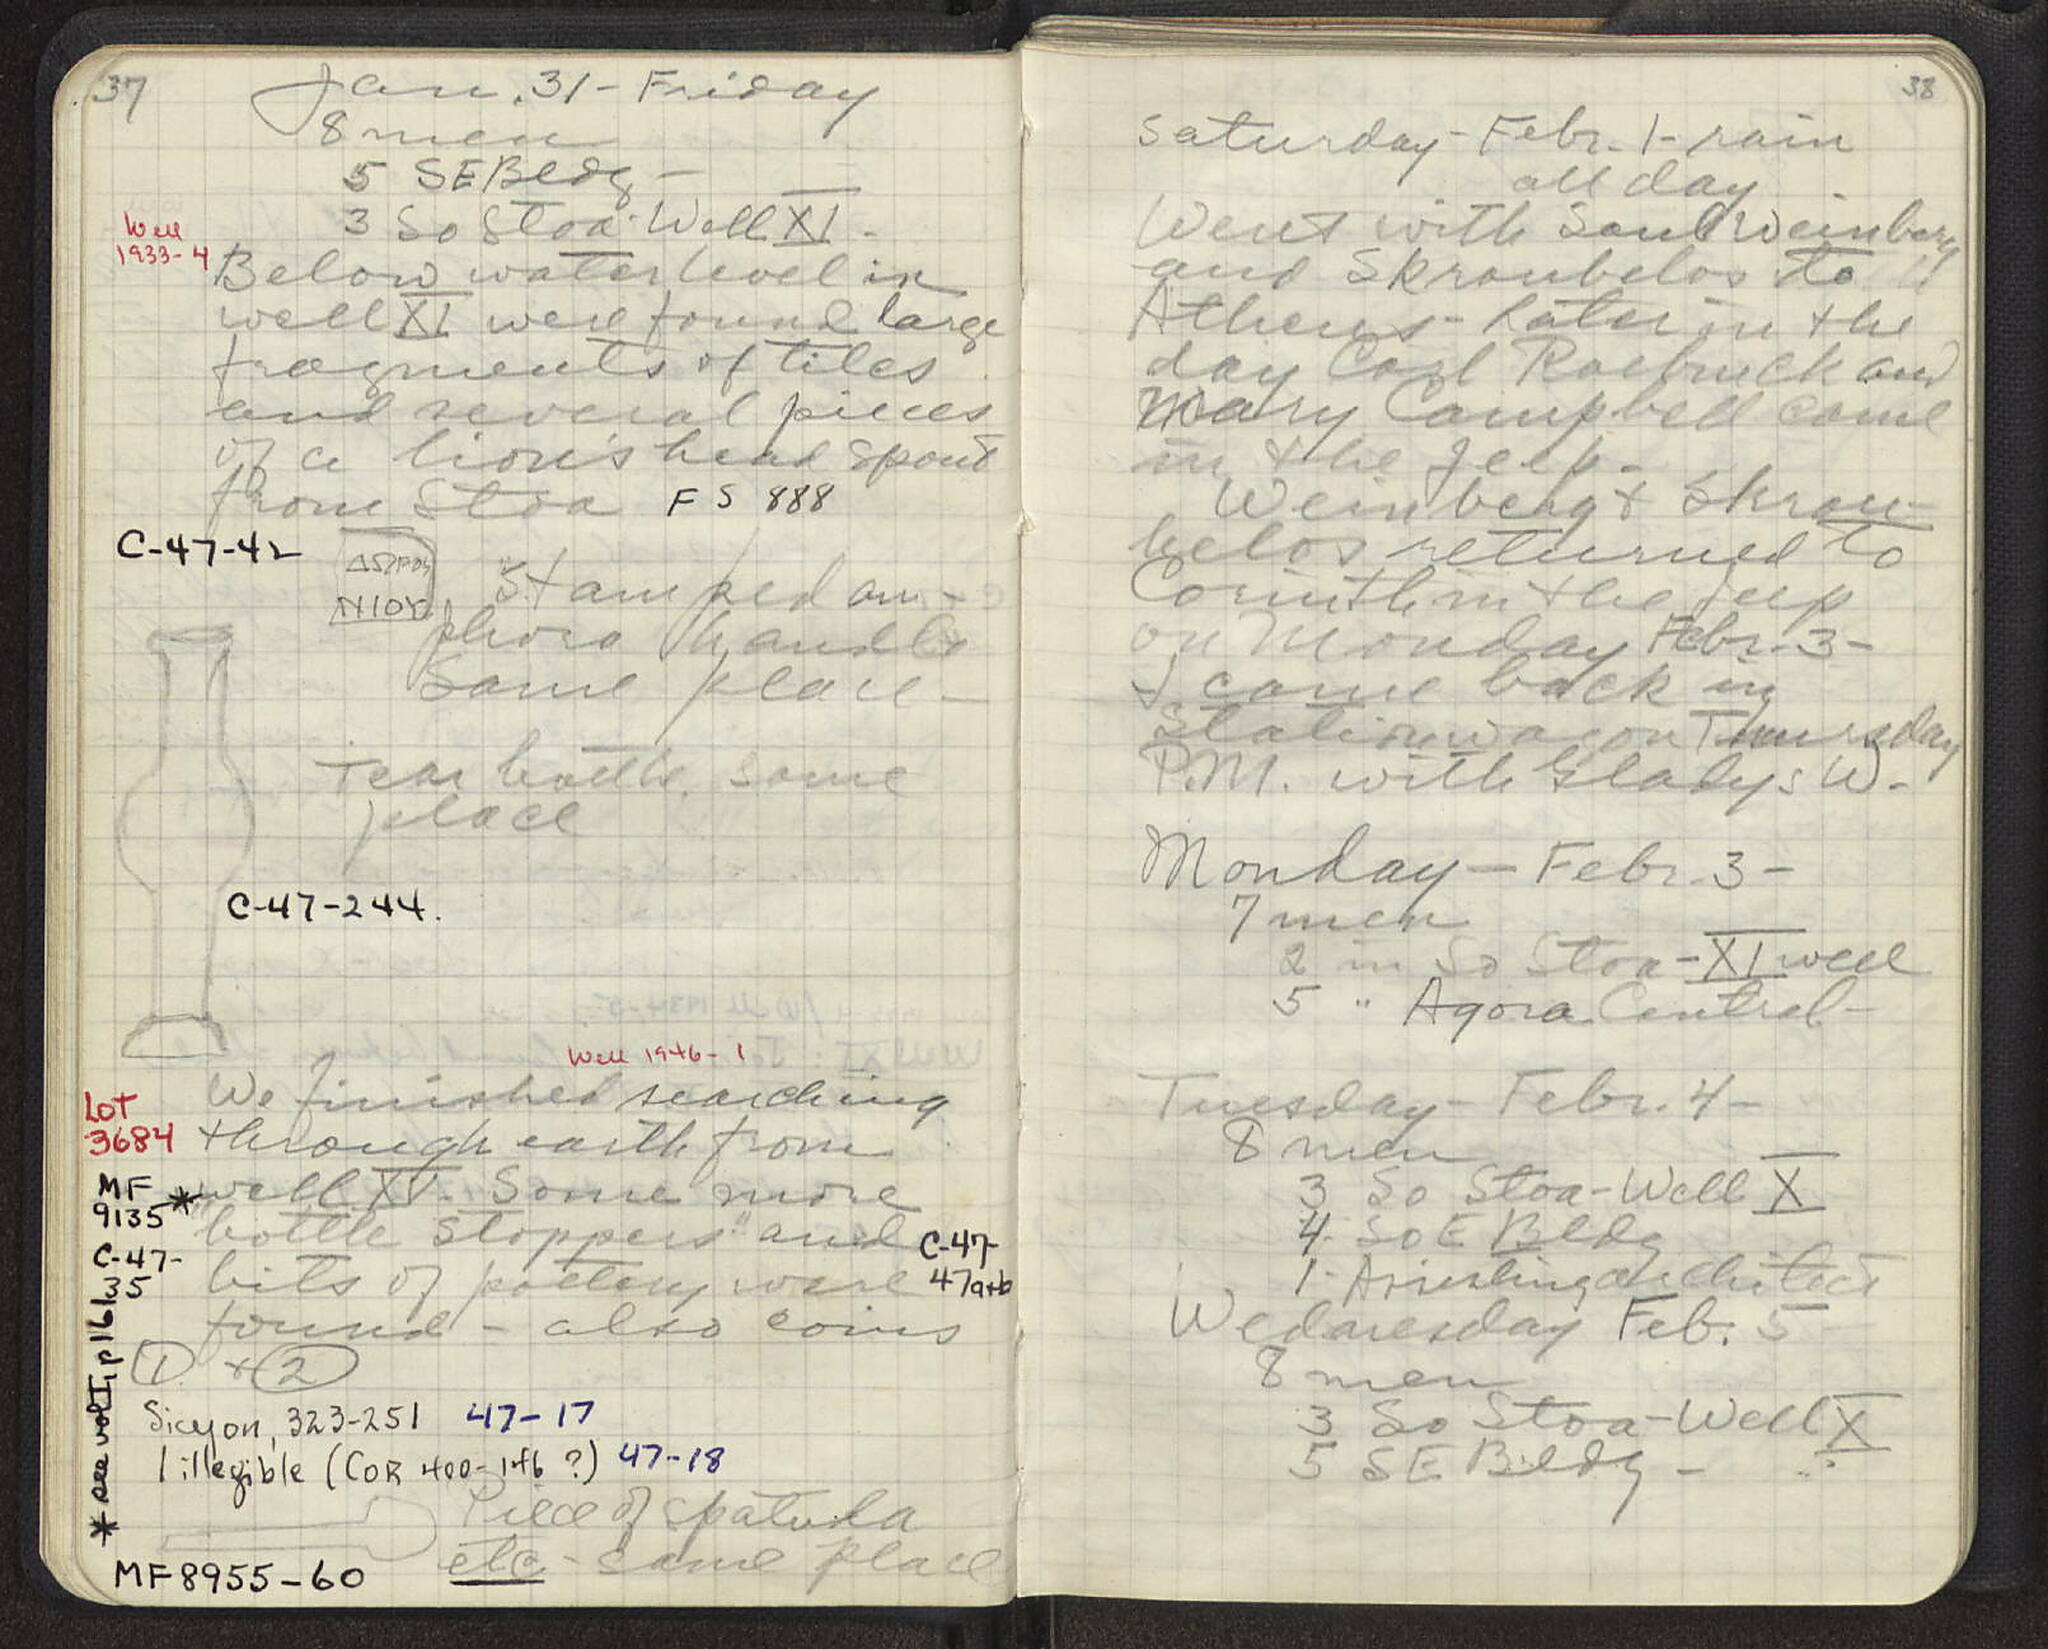 37
Jan. 31 - Friday
8 men
5 SE Bldg -
3 So Stoa - Well XI -
Well
1933-4
Below water level in
well XI were found large
fragments of tiles
and several pieces
of a lion's head spout
from Stoa F S 888
C-47-42
NIOY
Stamped am-
phora handle
Same place -
Tear bottle. Same
place
C-47-244.
Well 1946-1
We finished searching
Lot
3684
through earth from
MF
9135 *
well XV. Some more
"bottle stoppers" and
C-47-
47a+b
C-47-
35
bits of pottery were
found - also coins
1 + 2
Sicyon, 323-251 47-17
1 illegible (COR 400-146 ?) 47-18
* see vol I, p 161
Piece of spatula
etc - same place
MF 8955-60
38
Saturday - Febr. 1 - rain
all day
Went with Saul Weinberg
and Skroubelos to
Athens - Later in the
day Carl Roebuck and
Mary Campbell came
in the jeep -
Weinberg & Skrou-
belos returned to
Corinth in the jeep
on Monday Febr. 3 -
I came back in
Station wagon Thursday
P.M. with Gladys W -
Monday - Febr. 3 -
7 men
2 in So Stoa - XI well
5 " Agora Central -
Tuesday - Febr. 4 -
8 men
3 So Stoa - Well X
4 So E Bldg
1 - Assisting architect
Wednesday Feb. 5 -
8 men
3 So Stoa - Well X
5 SE Bldg -